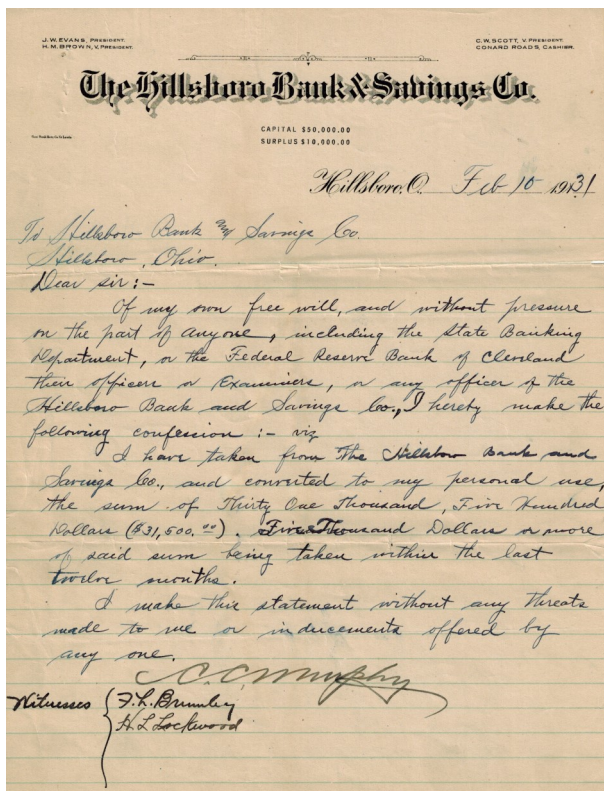 J.W. EVANS, PRESIDENT.
H.M. BROWN, V. PRESIDENT.
C.W. SCOTT, V. PRESIDENT.
CONARD ROADS, CASHIER.
The Hillsboro Bank & Savings Co.
CAPITAL $50,000.00
SURPLUS $10,000.00
Hillsboro, O. Feb 10 1931
To Hillsboro Bank and Savings Co.
Hillsboro, Ohio.
Dear sir:-
Of my own free will, and without pressure
on the part of anyone, including the State Banking
Department, or the Federal Reserve Bank of Cleveland
their officers or Examiners, or any officer of the
Hillsboro Bank and Savings Co., I hereby make the
following confession :- viz
I have taken from The Hillsboro Bank and
Savings Co., and converted to my personal use,
the sum of Thirty One Thousand, Five Hundred
Dollars ($31,500.00). Five Thousand Dollars or more
of said sum being taken within the last
twelve months.
I make this statement without any threats
made to me or inducements offered by
any one.
C. C. Murphy
Witnesses { F. L. Brumley
H L Lockwood